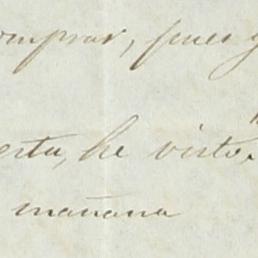 comprar, pues y
erta, he visto
mañana